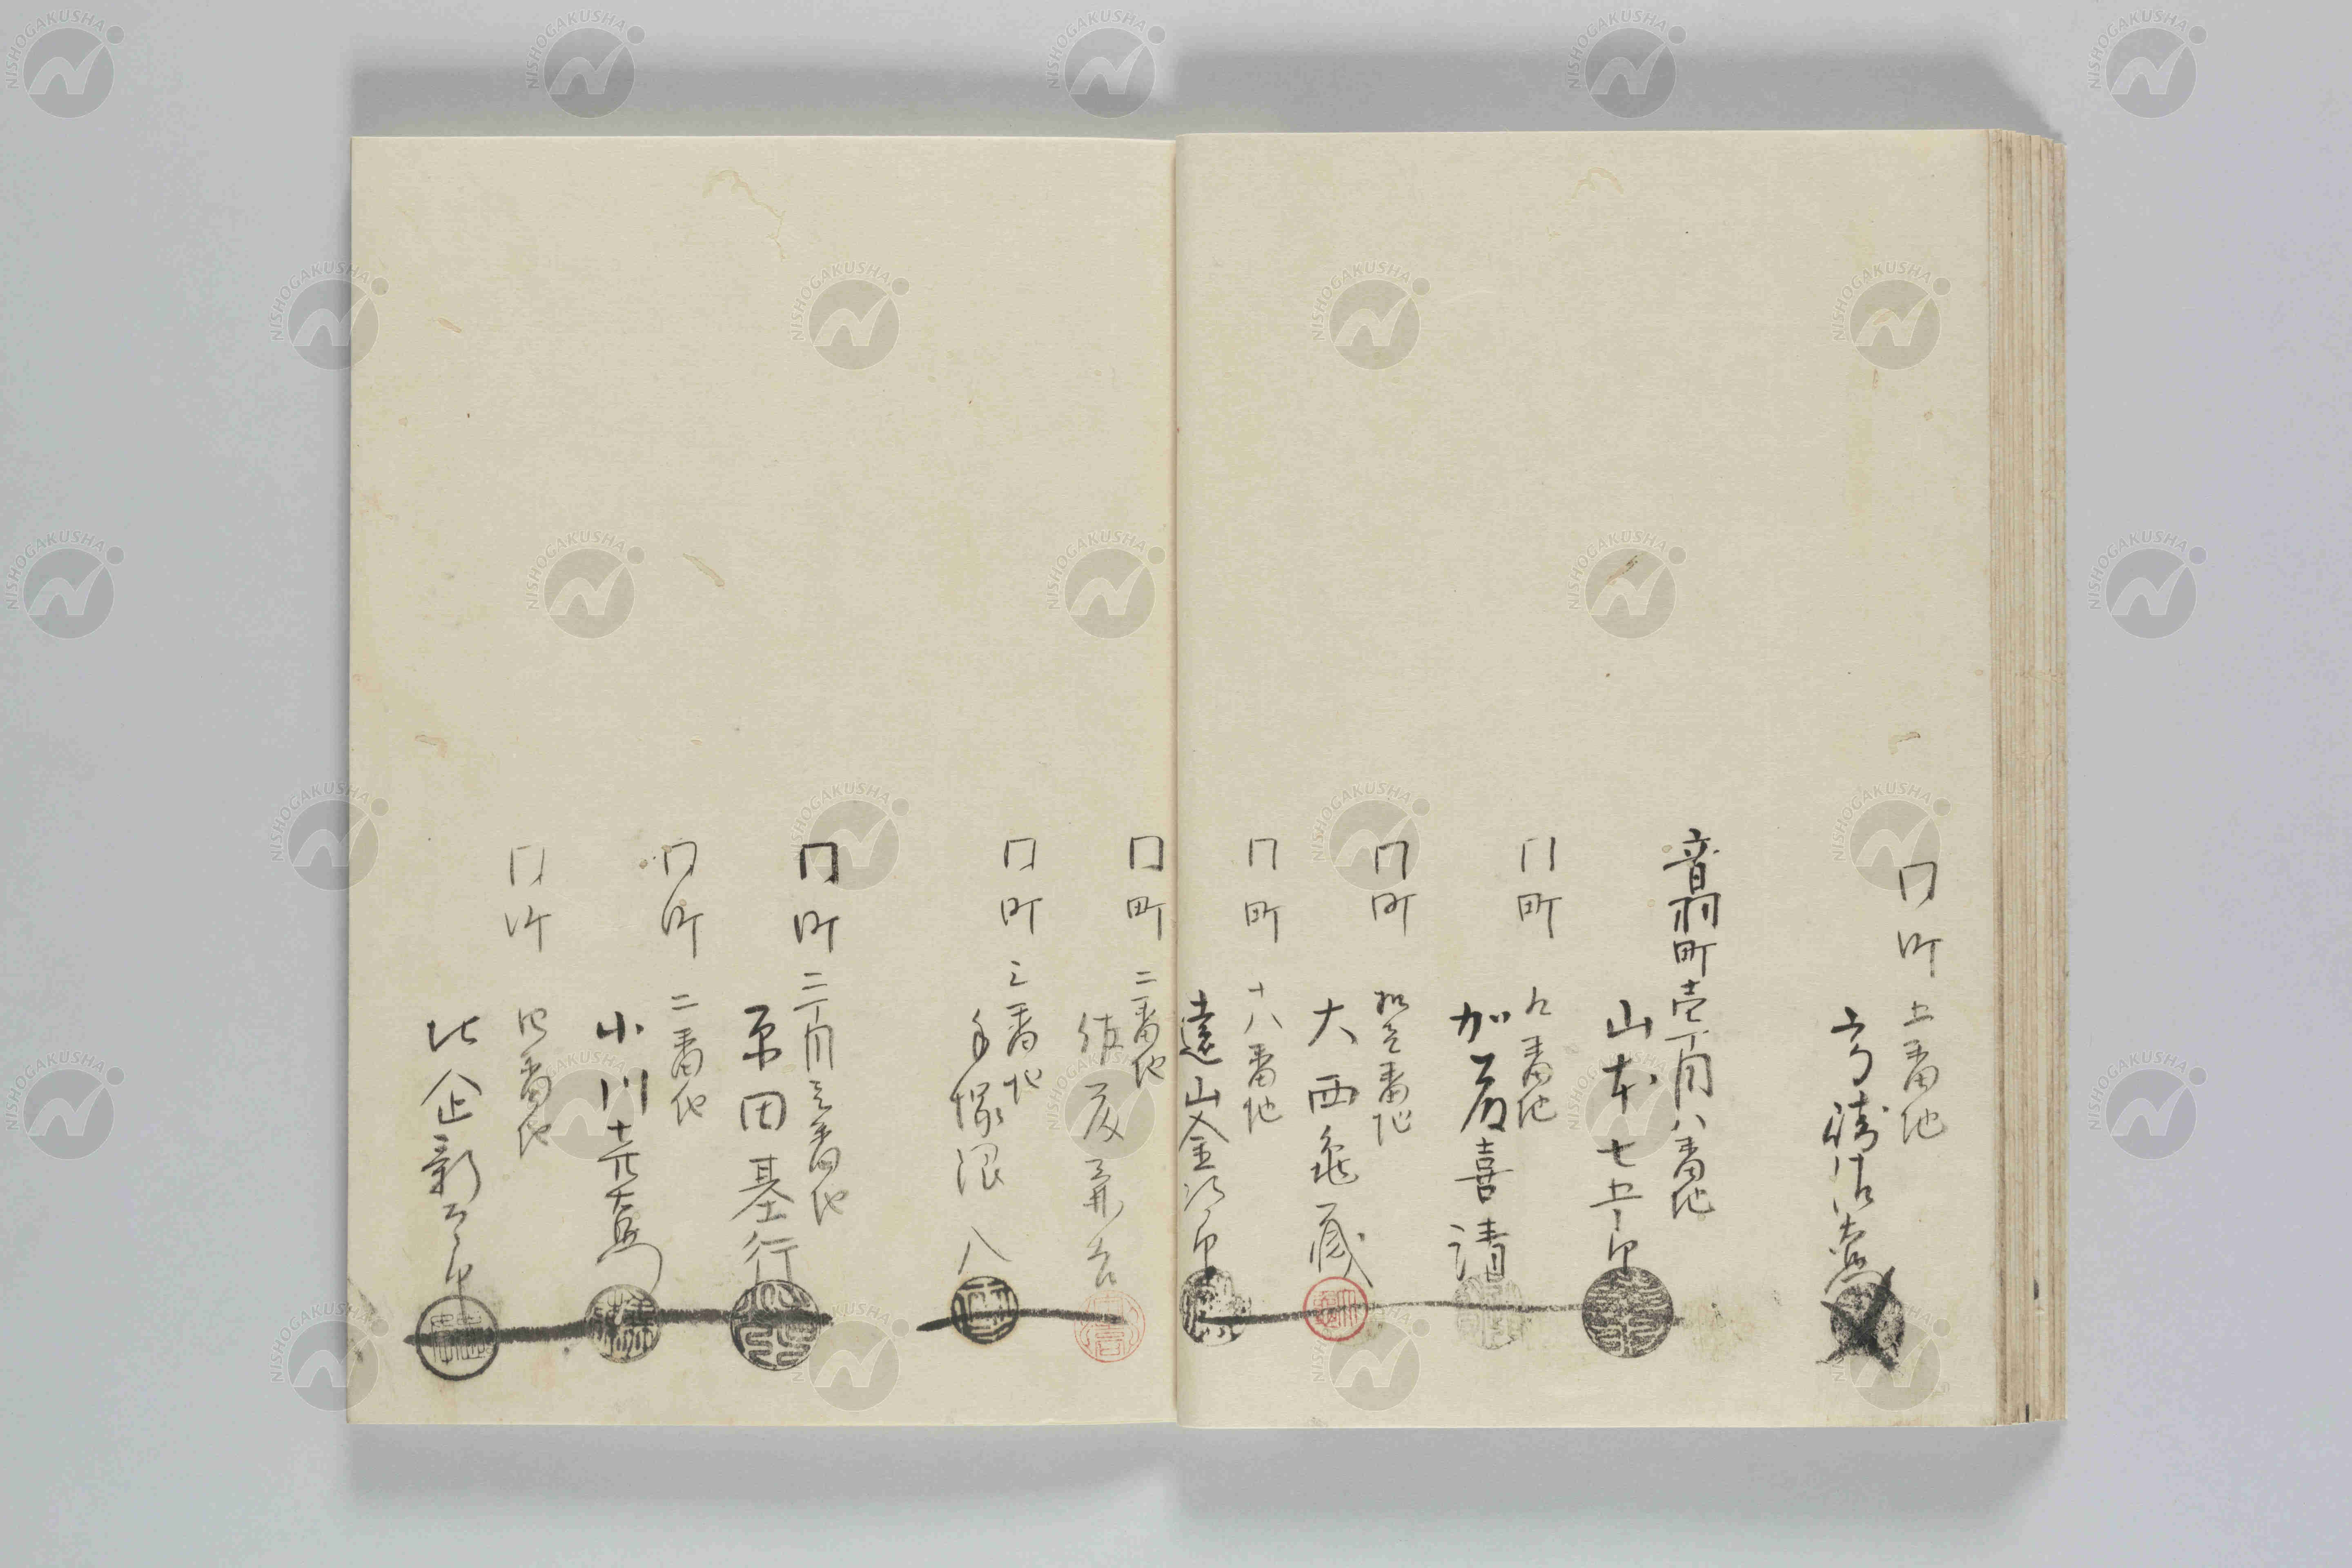 同町 五番地
音羽町壱丁目八番地
山本七五郎
同町 九番地
加藤喜清
同町 拾壱番地
大西亀蔵
同町 十八番地
遠山金次郎
同町 二番地
佐藤
同町 三番地
手塚浪八
同町二丁目三番地
原田基行
同町 二番地
小川
同町 四番地
比企新
NISHOGAKUSHA